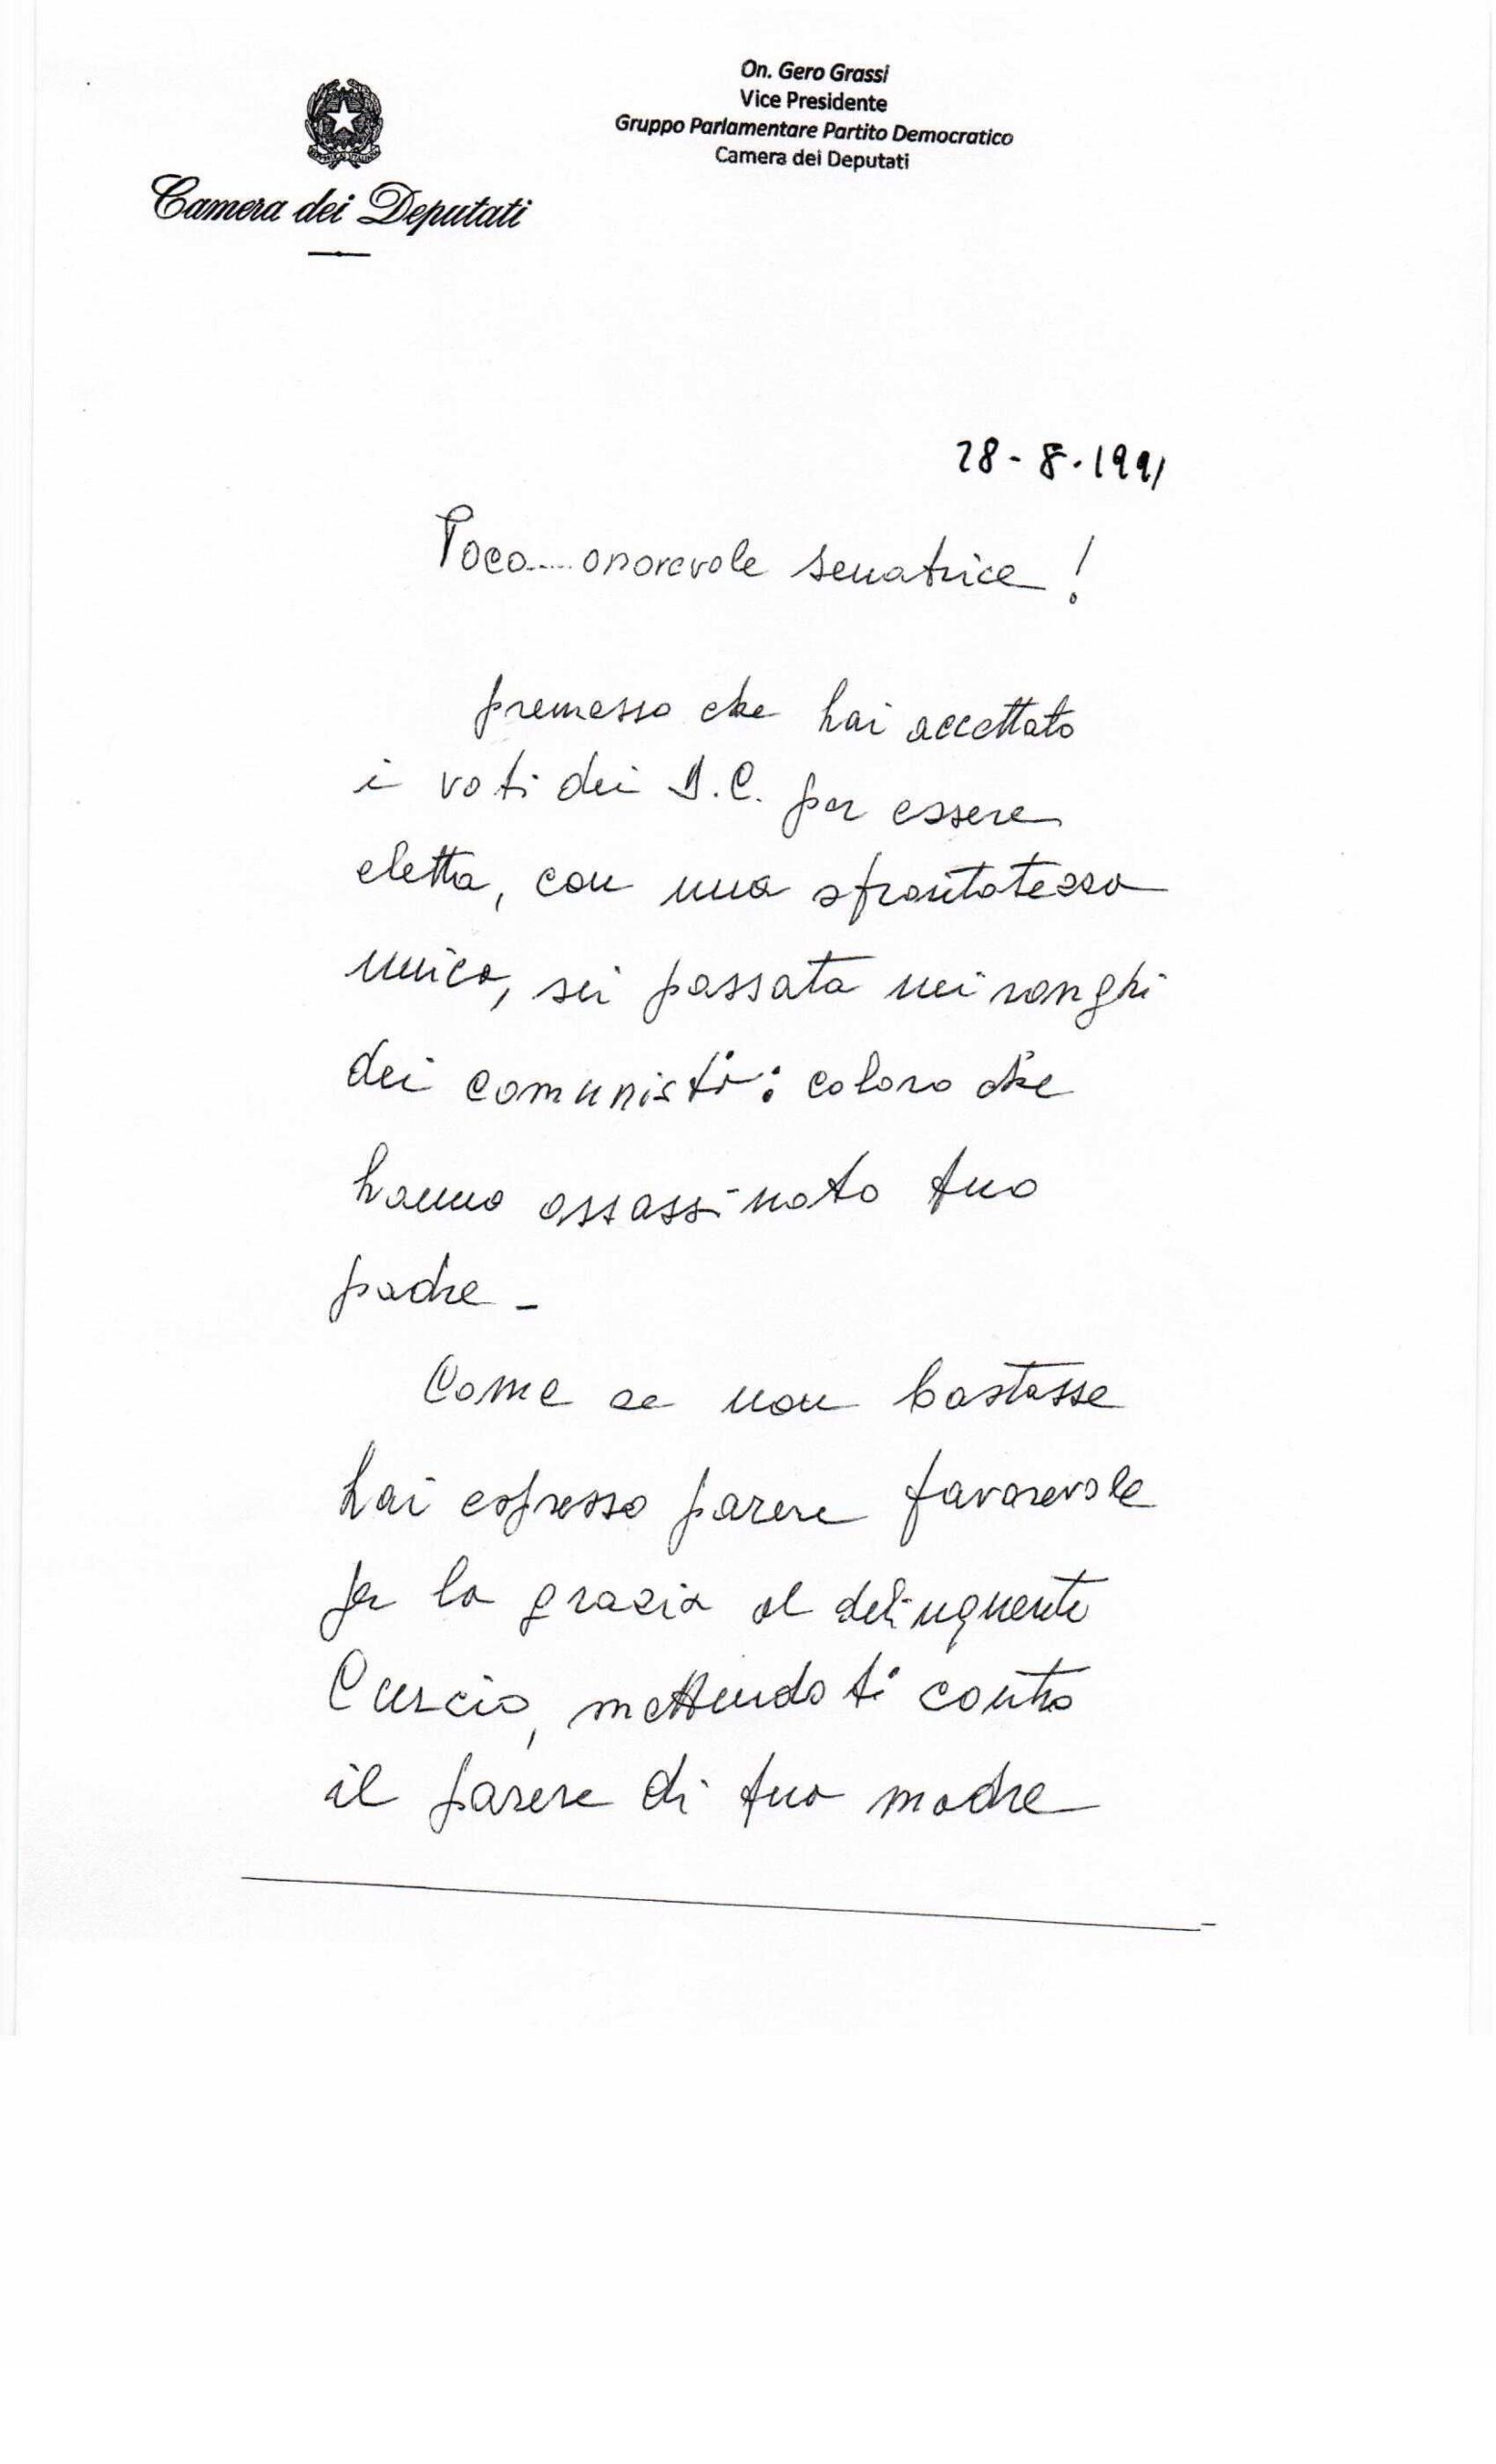 On. Gero Grassi
Vice Presidente
Gruppo Parlamentare Partito Democratico
Camera dei Deputati
Camera dei Deputati
28-8-1991
Poco.....onorevole senatrice!
premesso che hai accettato
i voti dei D.C. per essere
eletta, con una sfrontatezza
unica, sei passata nei ranghi
dei comunisti: coloro che
hanno assassinato tuo
padre -
Come se non bastasse
hai espresso parere favorevole
per la grazia al delinquente
Curcio, mettendoti contro
il parere di tua madre